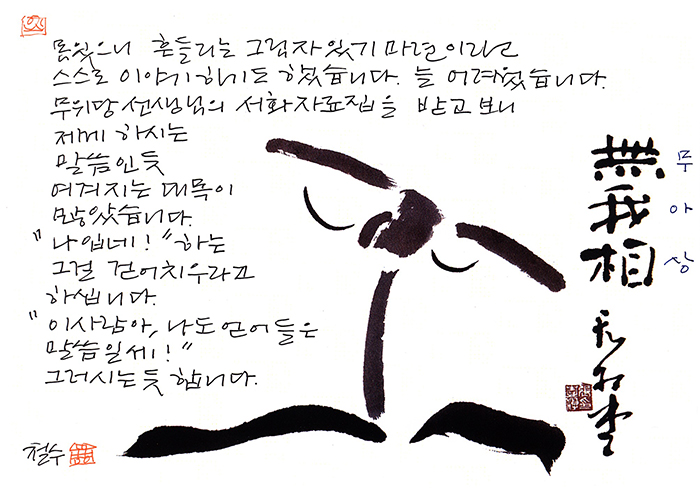 몸있으니 흔들리는 그림자있기 마련이라고
스스로 이야기하기도 했습니다. 늘 어려웠습니다.
무위당선생님의 서화자료집을 받고보니
저께 하시는
말씀인듯
여겨지는 대목이
많았습니다.
"나입네!" 하는
그걸 걷어치우라고
하십니다.
"이사람아, 나도 얻어들은
말씀일세!"
그러시는듯 합니다.
철수
無我相
무아상